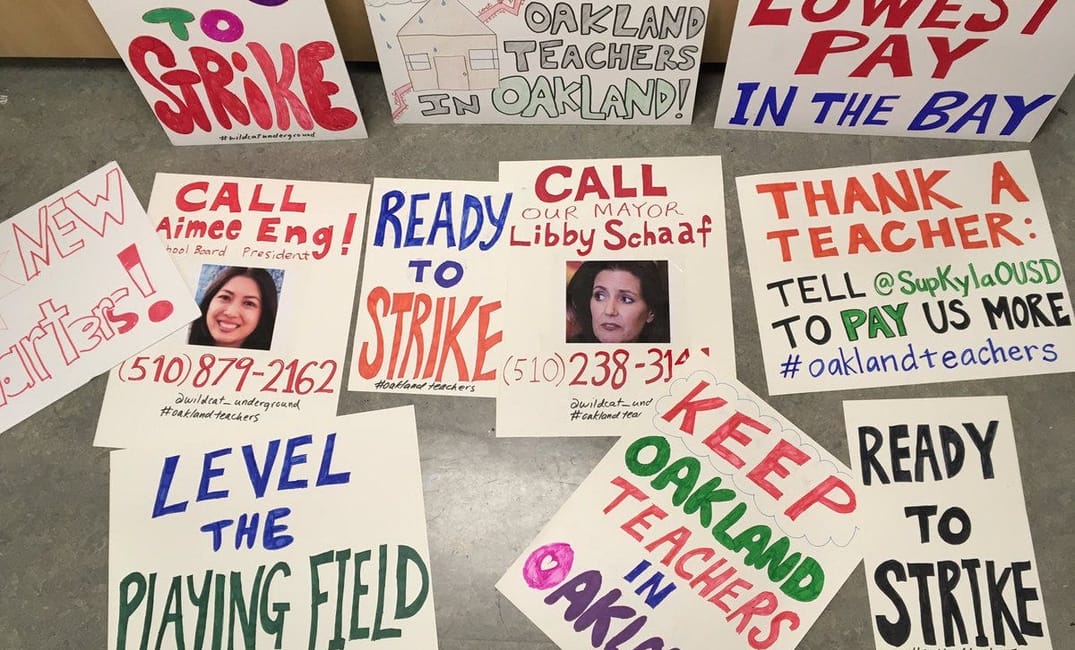 TO
STRIKE
#wildcatunderground
OAKLAND
TEACHERS
IN OAKLAND!
LOWEST
PAY
IN THE BAY
NEW
CALL
Aimee Eng!
School Board President
(510) 879-2162
@wildcat_underground
#oaklandteachers
READY
TO
STRIKE
#oaklandteachers
CALL
OUR MAYOR
Libby Schaaf
(510) 238-31
@wildcat_und
#oaklandtea
THANK A
TEACHER:
TELL @SupKylaOUSD
TO PAY US MORE
#oaklandteachers
LEVEL
THE
PLAYING FIELD
KEEP
OAKLAND
TEACHERS
IN
OAKLA
READY
TO
STRIKE